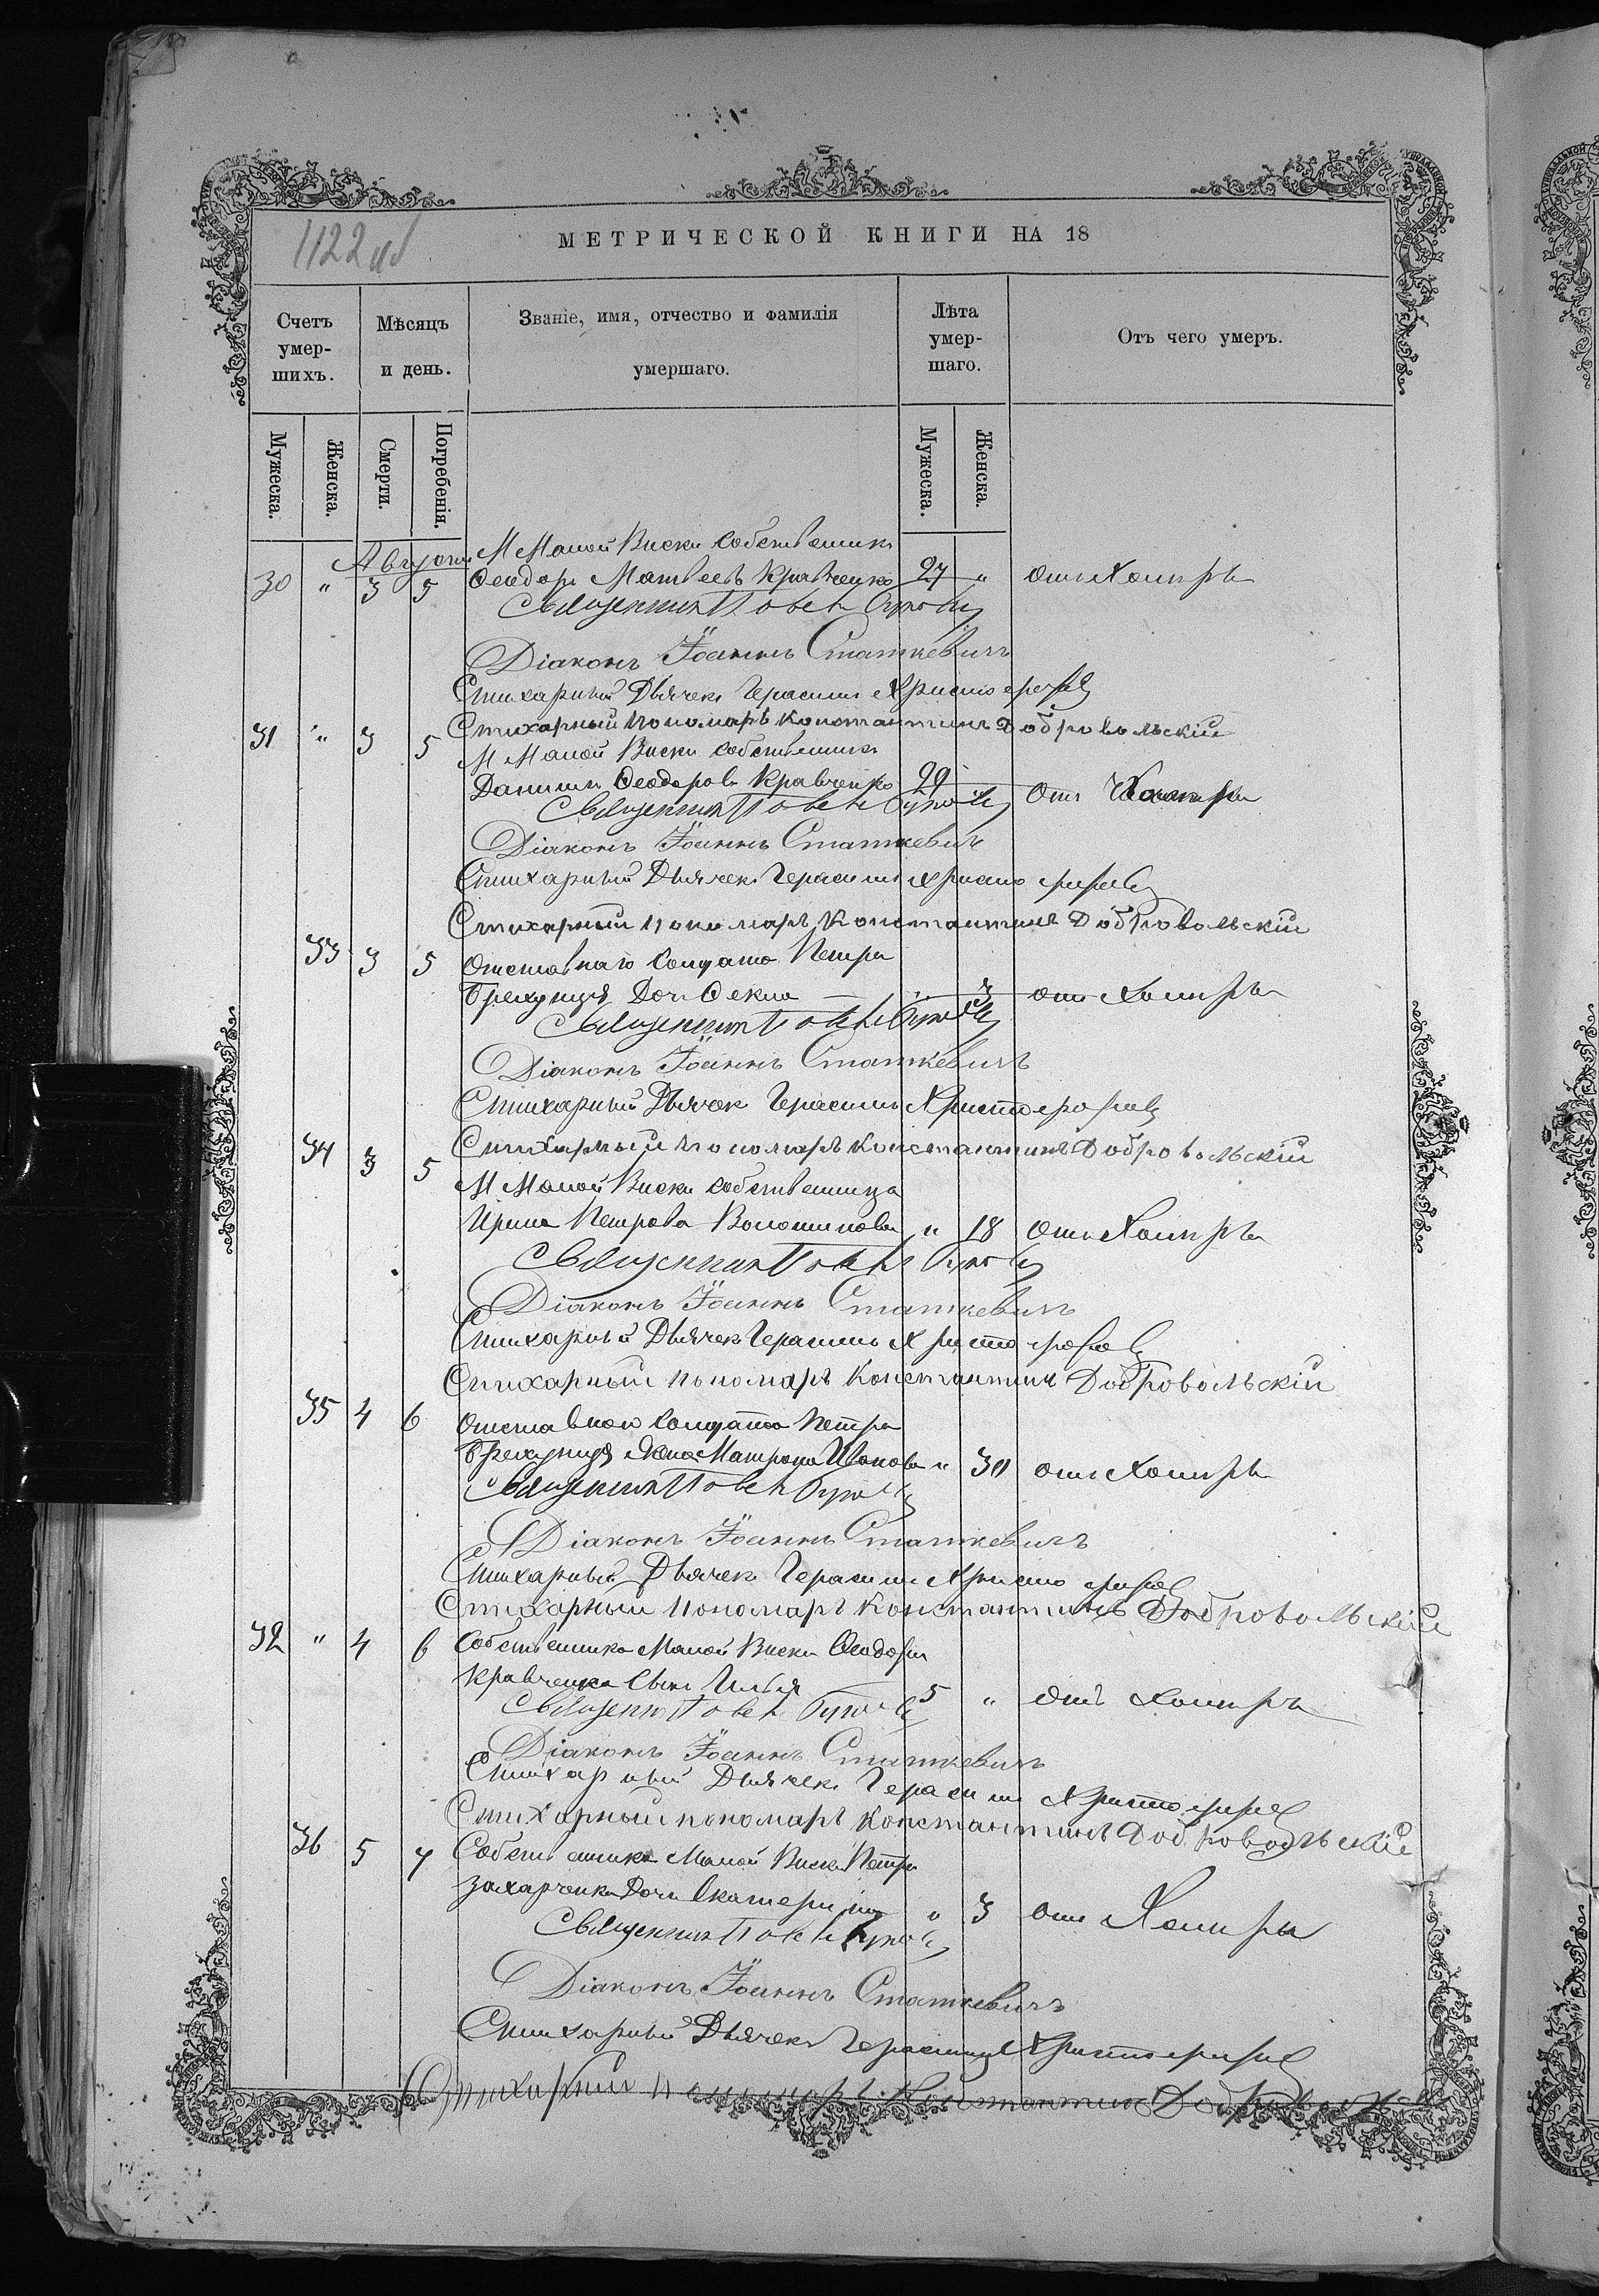 1122 об
МЕТРИЧЕСКОЙ КНИГИ НА 18
Счетъ умер-шихъ.
Мѣсяцъ и день.
Званіе, имя, отчество и фамилія умершаго.
Лѣта умер-шаго.
Отъ чего умеръ.
Мужеска.
Женска.
Смерти.
Погребенія.
Мужеска.
Женска.
Августъ
М Малой Виски собственникъ
30 " 3 5 Ѳеодоръ Матвеевъ Кравченко 27 " отъ Холиры
Священникъ
Діаконъ Іоаннъ Статкевичъ
Стихарный Дьячекъ Герасимъ Христофоровъ
Стихарный пономарь Константинъ Добровольскій
31 " 3 5 М Малой Виски собственникъ
Даниилъ Ѳеодоровъ Кравченко 29 " отъ Холиры
Священникъ
Діаконъ Іоаннъ Статкевичъ
Стихарный Дьячекъ Герасимъ Христофоровъ
Стихарный пономарь Константинъ Добровольскій
33 3 5 Отставнаго Солдата Петра
Дочь Ѳекла " 3 отъ Холиры
Священникъ
Діаконъ Іоаннъ Статкевичъ
Стихарный Дьячек Герасимъ Христофоровъ
Стихарный пономарь Константинъ Добровольскій
34 3 5 М Малой Виски собственница
Ирина Петрова Волошинова " 18 отъ Холиры
Священникъ
Діаконъ Іоаннъ Статкевичъ
Стихарный Дьячек Герасимъ Христофоровъ
Стихарный пономарь Константинъ Добровольскій
35 4 6 Отставного Солдата Петра
жена Матрона Иванова " 30 отъ Холиры
Священникъ
Діаконъ Іоаннъ Статкевичъ
Стихарный Дьячекъ Герасимъ Христофоровъ
Стихарный пономарь Константинъ Добровольскій
32 " 4 6 Собственника Малой Виски Ѳеодора
Кравченка сынъ Илья 5 " отъ Холиры
Священник
Діаконъ Іоаннъ Статкевичъ
Стихарный Дьячекъ Герасимъ Христофоровъ
Стихарный пономарь Константинъ Добровольскій
36 5 7 Собственника Малой Виски Петра
Захарченка Дочь Екатерина " 3 отъ Холиры
Священникъ
Діаконъ Іоаннъ Статкевичъ
Стихарный Дьячекъ Герасимъ Христофоровъ
Стихарный пономарь Константинъ Добровольскій